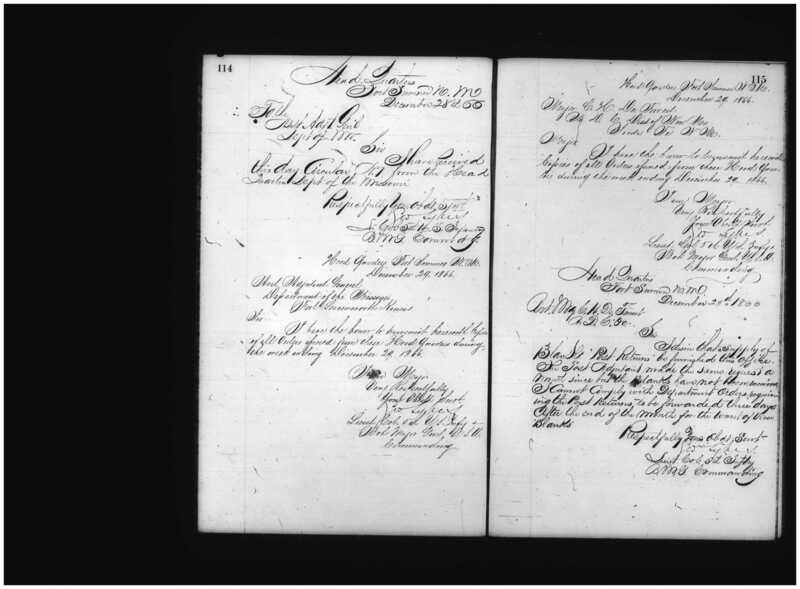 114
Head Quarters
Fort Sumner N. M
December 28th 66
To the
Asst Adjt Genl
Dept of the
Sir
I have received
this day Circular No 1 from the Head
Quarters Dept of the Missouri
Respectfully Your Obdt Servt
Geo Sykes
Lt Col 5th U S Infantry
B. M. G. Commandg
Head Quarters Fort Sumner N. M.
December 29. 1866.
Asst. Adjutant General
Department of the Missouri
Fort Leavenworth Kansas
Sir
I have the honor to transmit herewith Copies
of all Orders issued from these Head Quarters during
the week ending December 29, 1866.
Very Respectfully
Your Obdt Servt
Geo Sykes
Lieut Col. 5th U. S. Infty &
Bvt Major Genl, U. S. A.
Commanding
115
Head Quarters Fort Sumner N. M.
December 29. 1866.
Major C. H. De Forrest
A. D. C. Dist of New Mex
Santa Fe N. M.
Major
I have the honor to transmit herewith
Copies of all Orders issued from these Head Quar-
ters during the week ending December 29. 1866.
I am Major
Very Respectfully
Your Obdt Servt
Geo Sykes
Lieut. Col. 5th U. S. Infty &
Bvt Major Genl, U. S. A.
Commanding
Head Quarters
Fort Sumner N. M.
December 29th 1866
Bvt. Maj C. H. De Forrest
A. D. C.
Sir
I desire that a supply of
Blanks Post Returns be furnished this Office.
The Post Adjutant made the same request a
Month since but the blanks have not been received
I cannot comply with Department Orders requir-
ing the Post Returns, to be forwarded three days
after the end of the Month for the want of these
Blanks
Respectfully Your Obdt, Servt
Geo Sykes
Lieut Col 5th Infty
B. M. G. Commanding